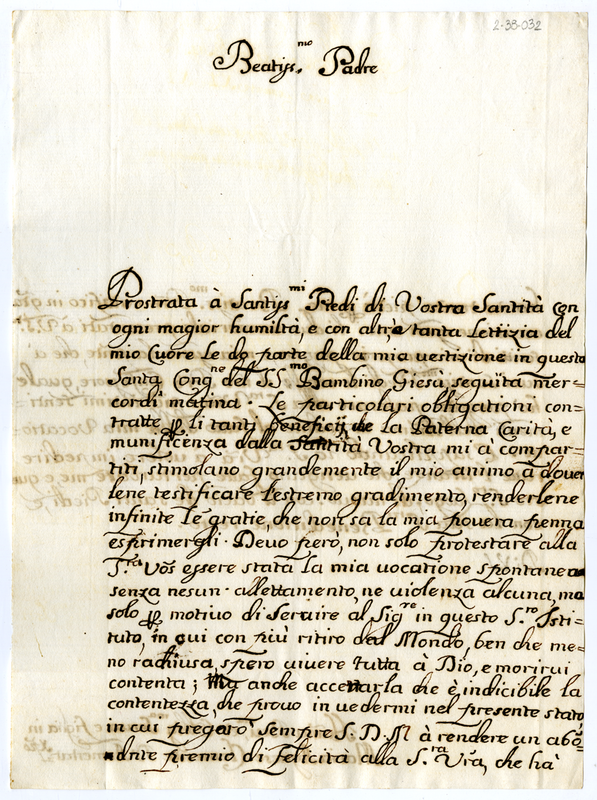 2-38-032
Beatiss.mo Padre
Prostrata à Santiss.mi Piedi di Vostra Santità con
ogni magior humiltà, e con altre tanta Lettizia del
mio Cuore Le do parte della mia vestizione in questa
Santa Cong.ne del SS.mo Bambino Giesù seguita mer=
cordi matina. Le particolari obligationi con=
tratte p li tanti beneficij che la Paterna Carità, e
munificenza dalla Santità Vostra mi à compar=
titi, stimolano grandemente il mio animo à dover
lene testificare l'estremo gradimento, renderlene
infinite le gratie, che non sa la mia povera penna
esprimergli. Devo però, non solo protestare alla
S.ra Vos essere stata la mia vocatione spontanea
senza nesun allettamento, ne violenza alcuna, ma
solo p motivo di Servire al Sig.re in questo S.to Isti=
tuto, in cui con più ritiro dal Mondo, ben che me=
no rachiusa, spero vivere tutta à Dio, e morirvi
contenta; Ma anche accertarla che è indicibile la
contentezza, che provo in vedermi nel presente stato
in cui pregarò sempre S. D. M. à rendere un abō=
dnte premio di Felicità alla S.ra Vra, che hà